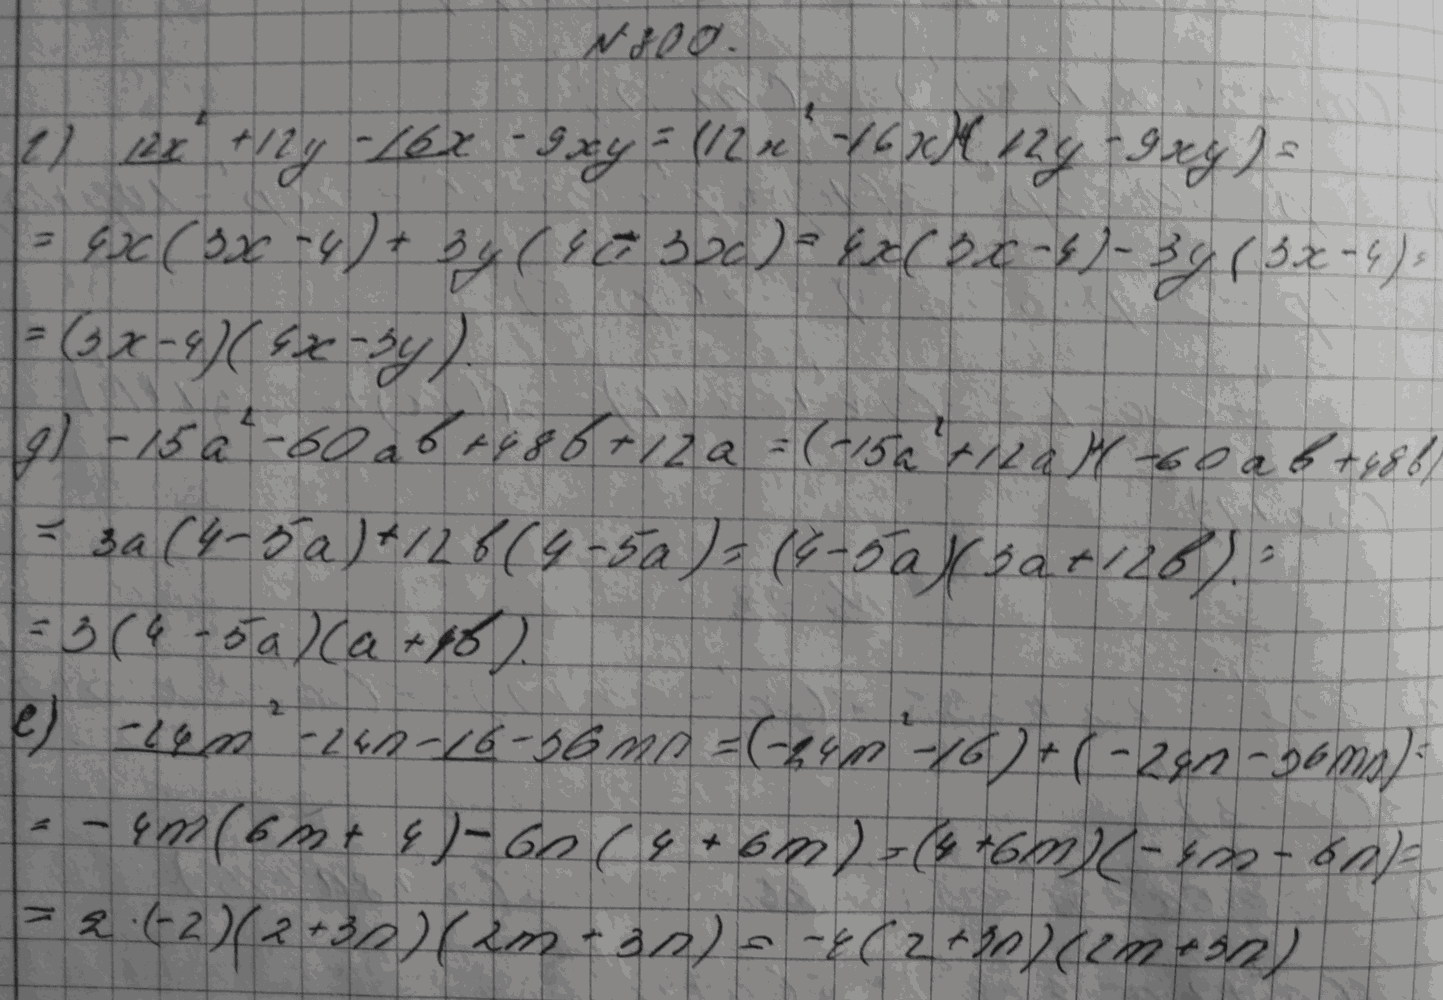 N 800.
г) 12x² + 12y - 16x - 9xy = (12x² - 16x) + (12y - 9xy) =
= 4x(3x - 4) + 3y(4 - 3x) = 4x(3x - 4) - 3y(3x - 4) =
= (3x - 4)(4x - 3y).
д) -15a² - 60ав + 48в + 12a = (-15a² + 12a) + (-60ав + 48в)
= 3a(4 - 5a) + 12в(4 - 5a) = (4 - 5a)(3a + 12в). =
= 3(4 - 5a)(a + 4в).
е) -24m² - 24n - 16 - 36mn = (-24m² - 16) + (-24n - 36mn) =
= -4m(6m + 4) - 6n(4 + 6m) = (4 + 6m)(-4m - 6n) =
= 2·(-2)(2 + 3n)(2m + 3n) = -4(2 + 3n)(2m + 3n)